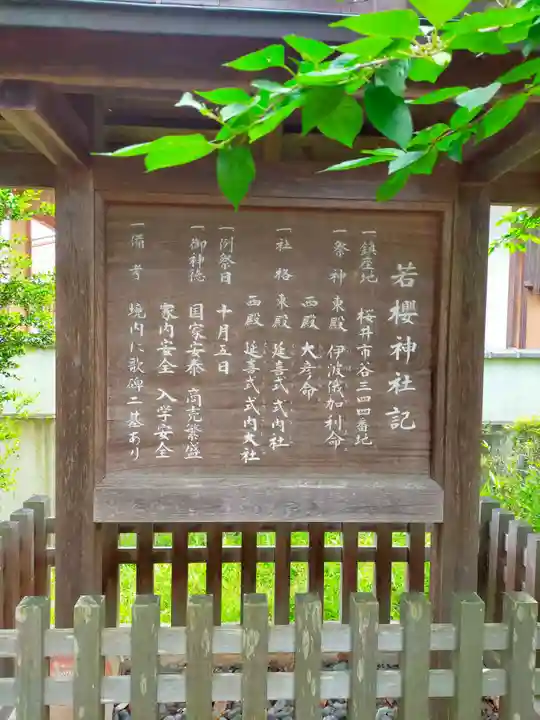 若櫻神社記
一鎮座地 桜井市谷三四四番地
一祭神 東殿 伊波俄加利命
西殿 大彦命
一社格 東殿 延喜式式内社
西殿 延喜式式内大社
一例祭日 十月五日
一御神徳 国家安泰 商売繁盛
家内安全 入学安全
一備考 境内に歌碑二基あり